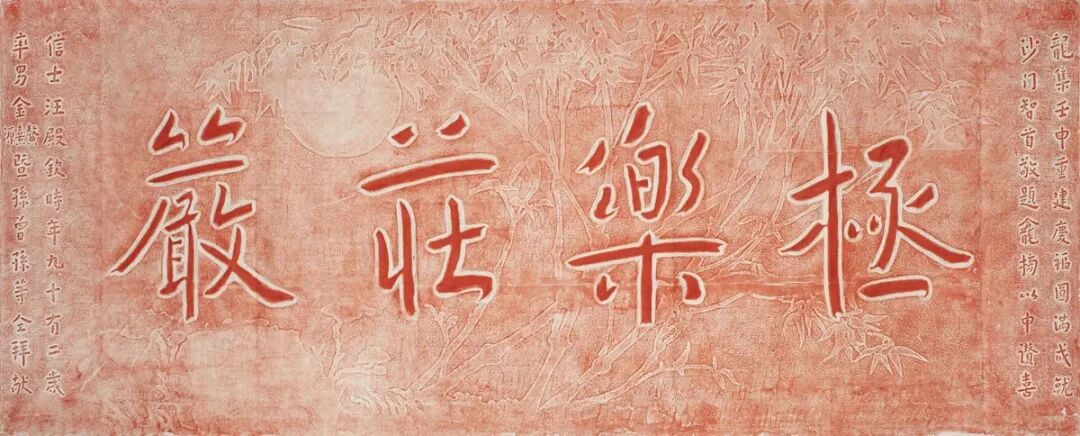 龍集壬申重建慶福圓滿成就
沙门智首敬題龕搨以申讚喜
極樂莊嚴
信士汪殿欽時年九十有二歲
率男金
暨孫曾孫等仝拜献